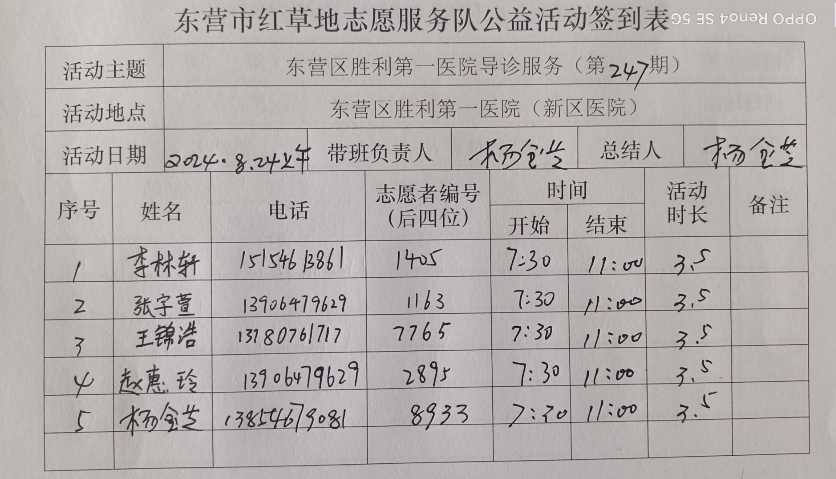 东营市红草地志愿服务队公益活动签到表
OPPO Reno4 SE 5G
活动主题 东营区胜利第一医院导诊服务（第247期）
活动地点 东营区胜利第一医院（新区医院）
活动日期 2024.8.24上午 带班负责人 杨金芝 总结人 杨金芝
序号 姓名 电话 志愿者编号（后四位） 时间 开始 结束 活动时长 备注
1 李林轩 15154613861 1405 7:30 11:00 3.5
2 张宇萱 13906479629 1163 7:30 11:00 3.5
3 王锦浩 13780761717 7765 7:30 11:00 3.5
4 赵惠玲 13906479629 2895 7:30 11:00 3.5
5 杨金芝 13854679081 8933 7:30 11:00 3.5